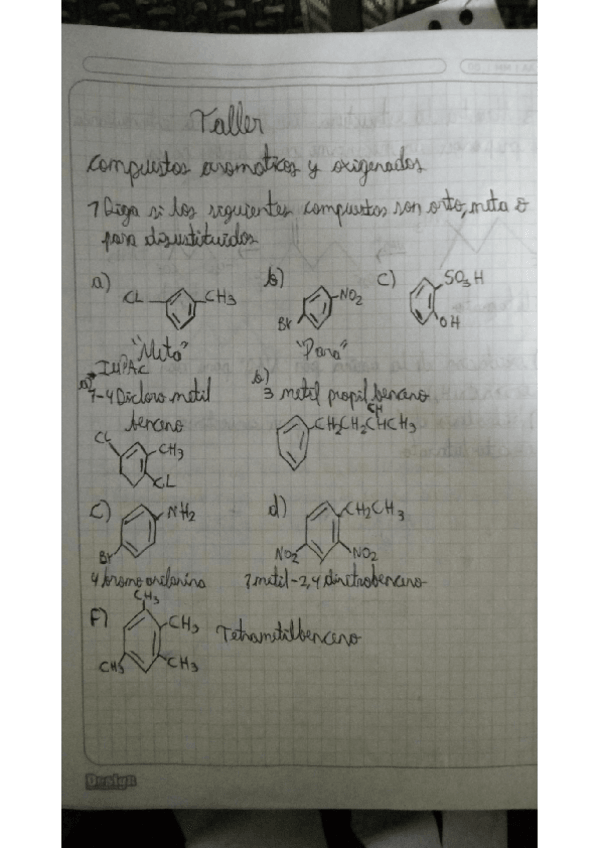 Taller
compuestos aromaticos y oxigenados
1 Diga si los siguientes compuestos son orto, meta o
para disustituidos
a) CL CH3 b) NO2 Br C) SO3H OH
"Meta" "Para"
* IUPAC
a) 1-4 Dicloro metil
benceno
b)
3 metil propil benceno
CL CH3 CL
CH
CH2CH2CHCH3
C) NH2 Br d) CH2CH3 NO2 NO2
4 bromo 1metil-2,4 dinitrobenceno
F) CH3 CH3 CH3 CH3 Tetrametilbenceno
Design